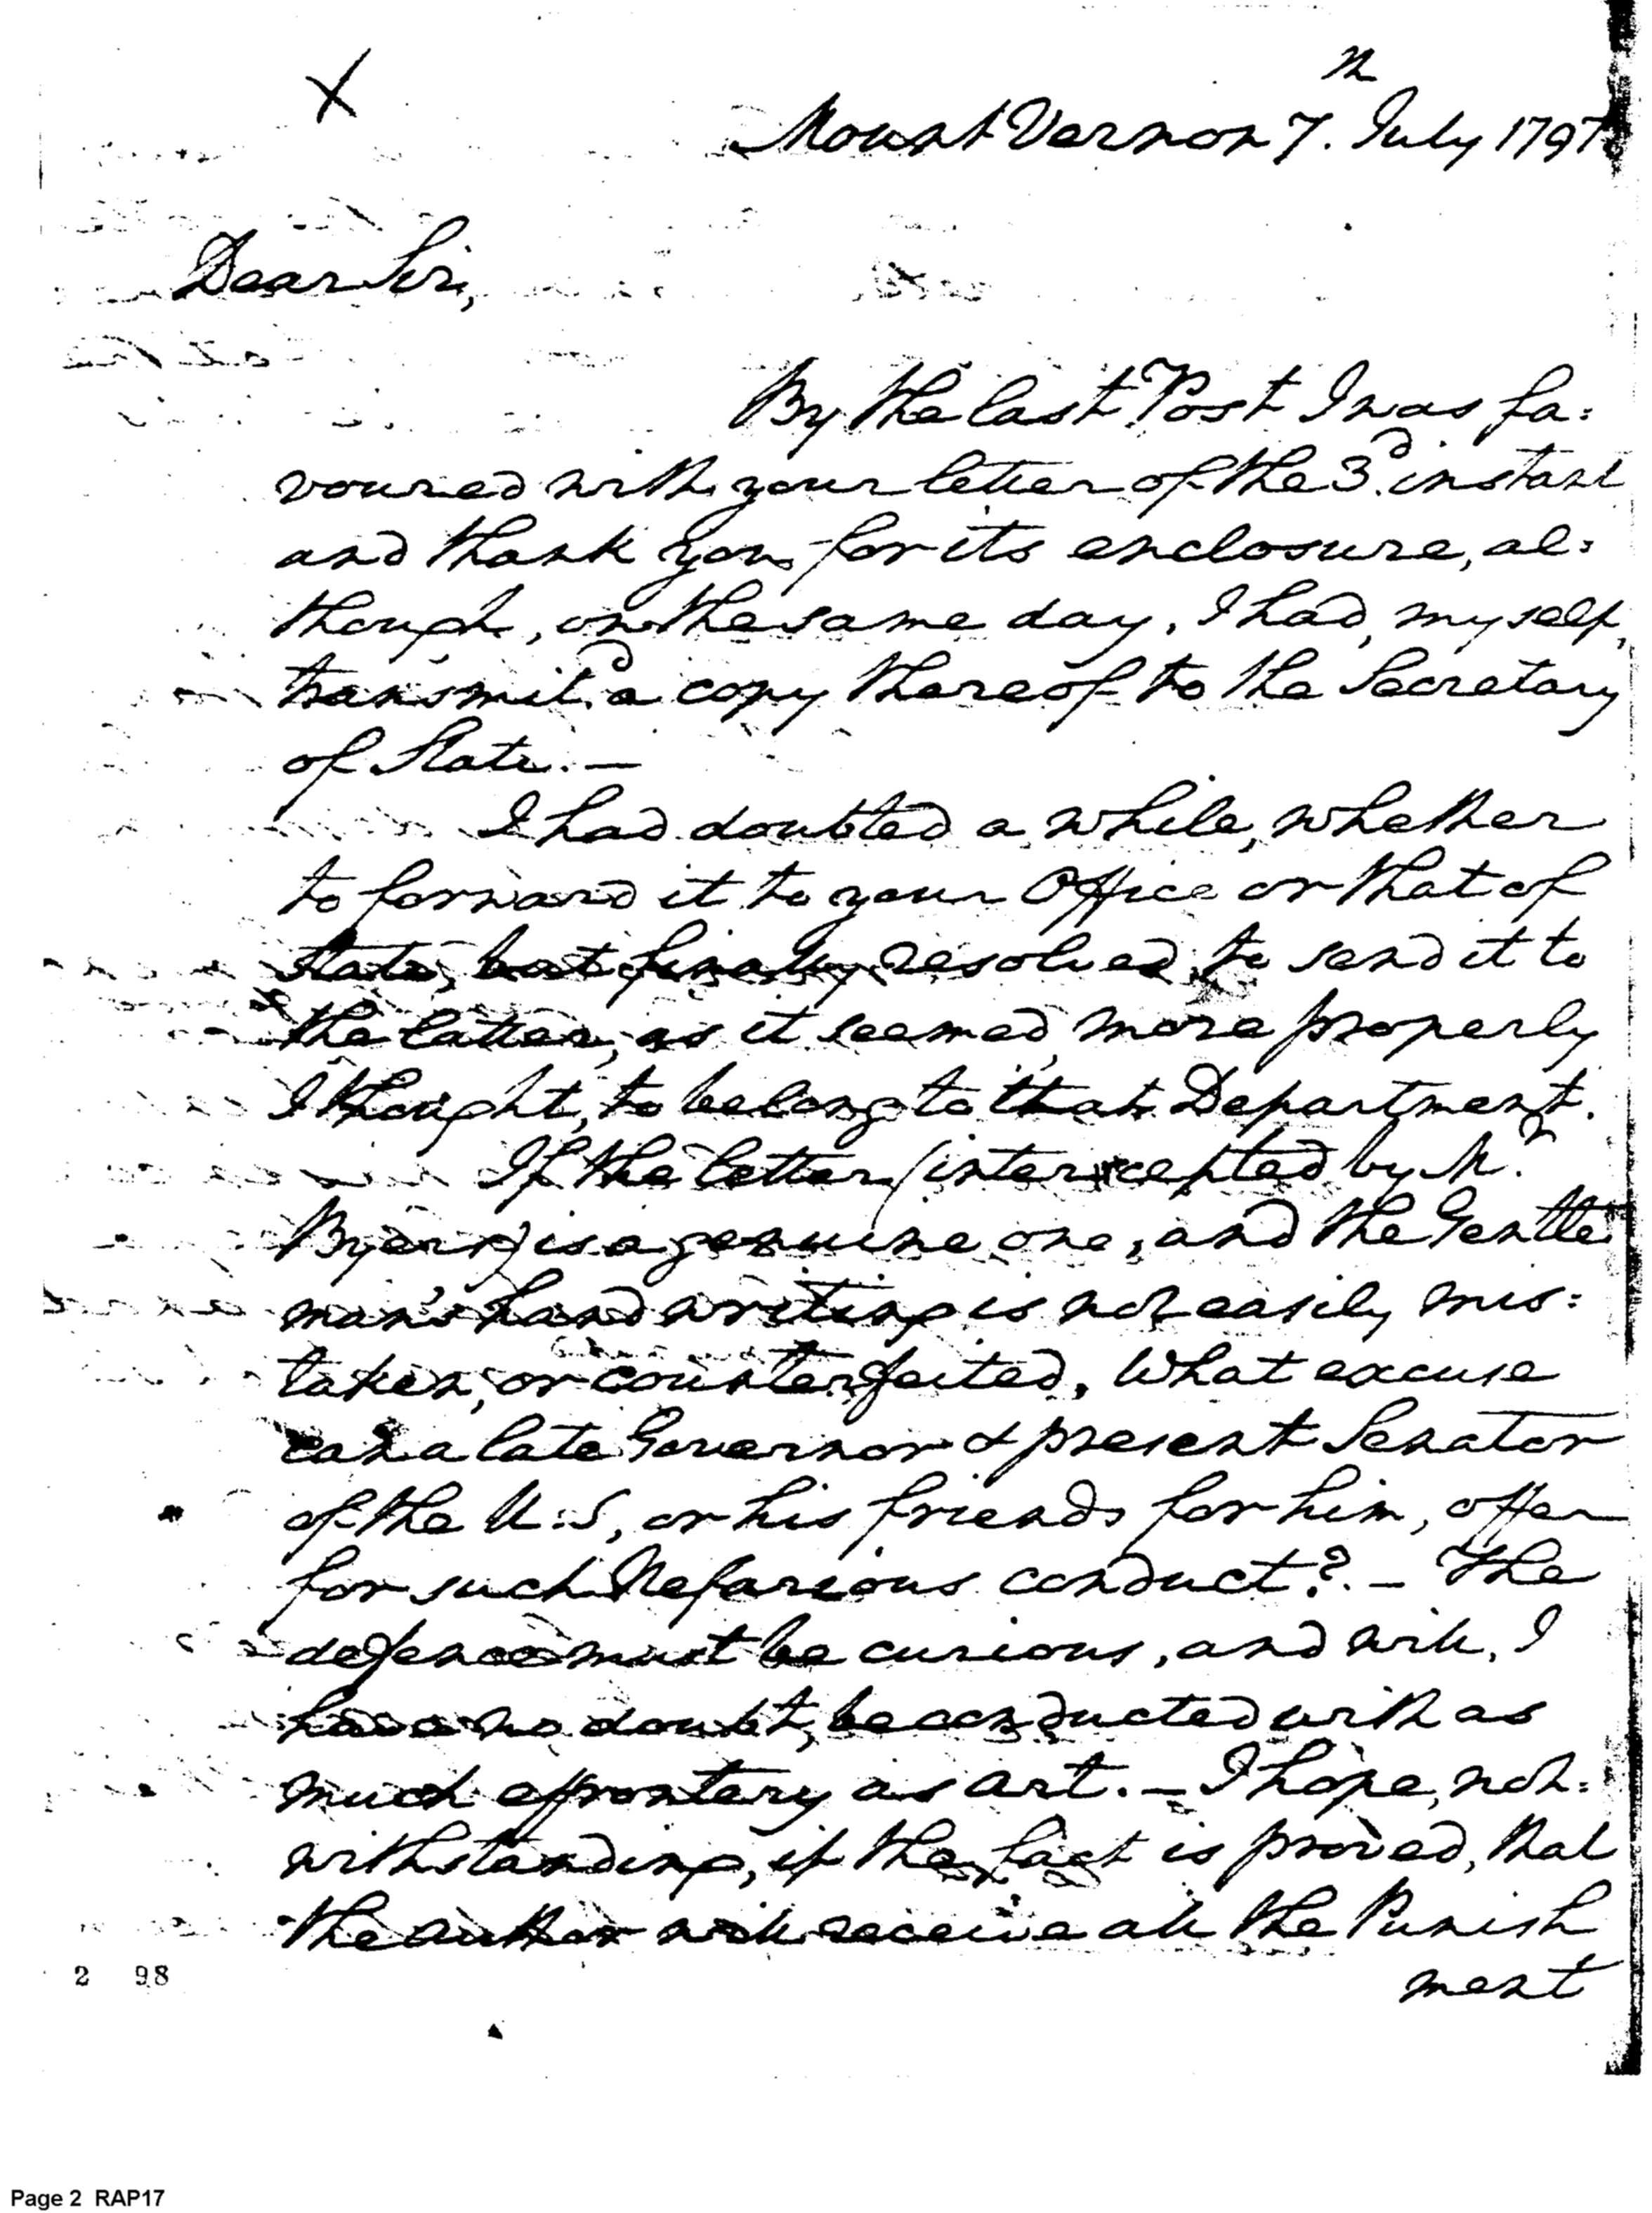 X
Mount Vernon 7th July 1797
Dear Sir,
By the last Post I was fa:
voured with your letter of the 3d instant
and thank you for its enclosure, al:
though, on the same day, I had, myself,
transmitd a copy thereof to the Secretary
of State.—
I had doubted a while, whether
to forward it to your Office or that of
State, but finally resolved to send it to
the latter, as it seemed more properly
I thought, to belong to that Department.
If the letter (intercepted by Mr
Byers) is a genuine one, and the Gentle
man's handwriting is not easily mis:
taken, or counterfeited, What excuse
can a late Governor & present Senator
of the U:S, or his friends for him, offer
for such Nefarious conduct?.— The
defence must be curious, and will, I
have no doubt, be conducted with as
much effrontery as art.— I hope, not:
withstanding, if the fact is proved, that
the author will receive all the Punish
ment
2 98
Page 2 RAP17